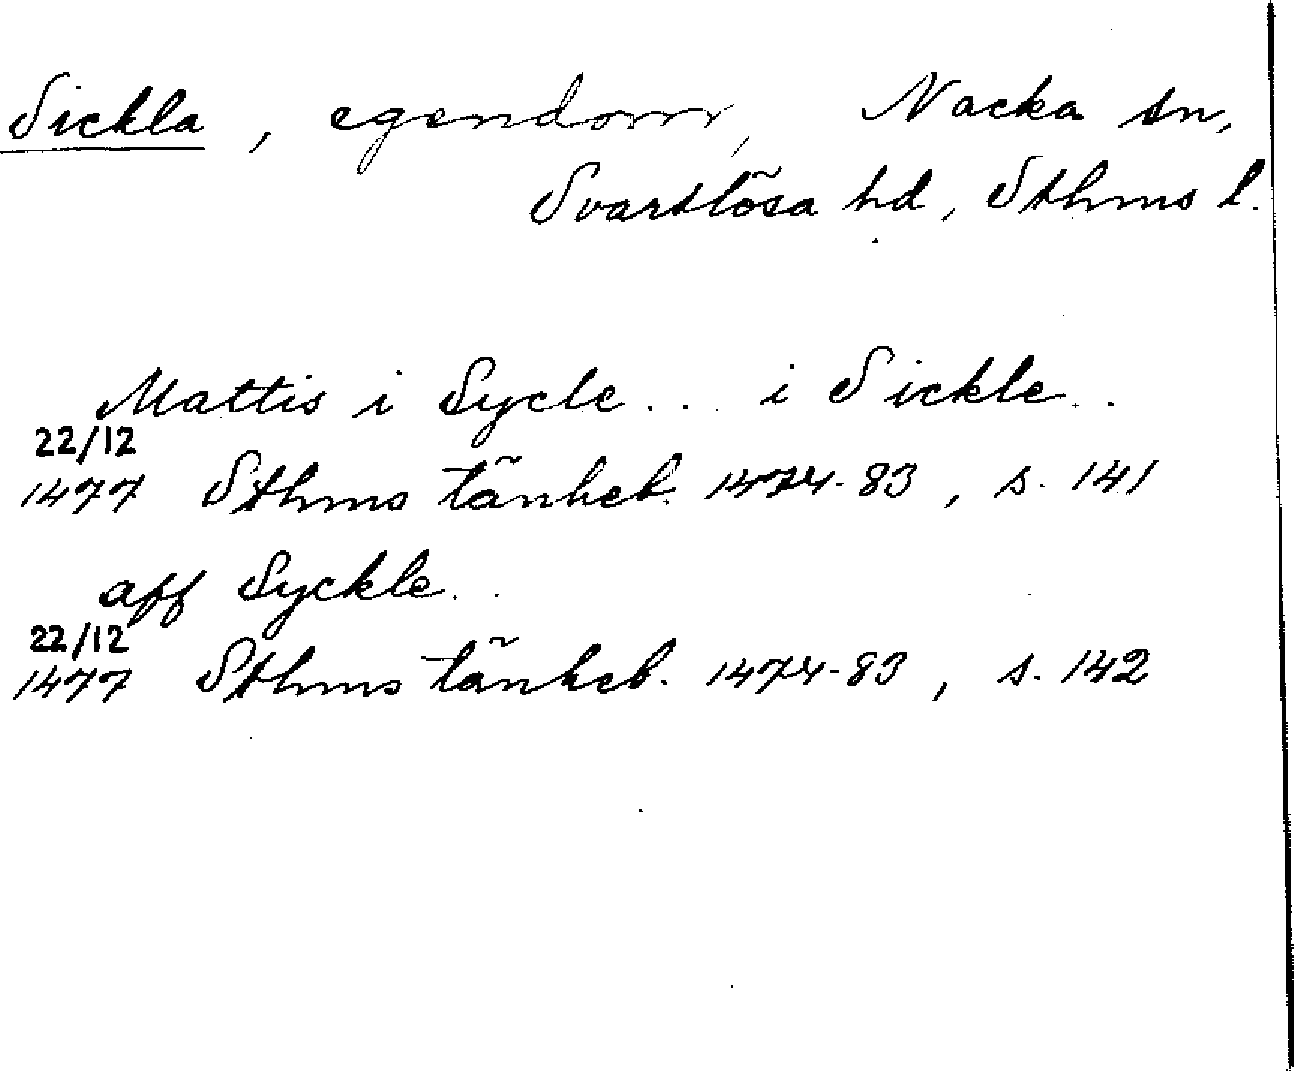 Sickla, egendom, Nacka sn,
Svartlösa hd, Sthms l.
Mattis i Sycle... i Sickle..
22/12
1477 Sthms tänkeb. 1474-83, s. 141
aff Syckle..
22/12
1477 Sthms tänkeb. 1474-83, s. 142